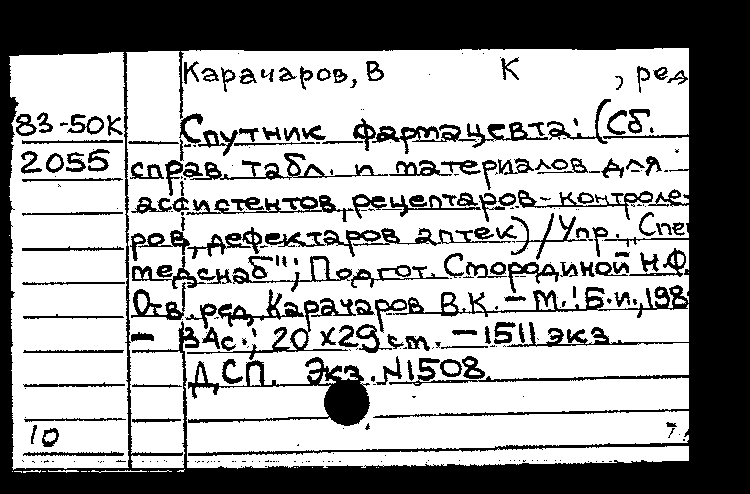 Карачаров, В К , ред
83-50К Спутник фармацевта: (Сб.
2055 справ. табл. и материалов для
ассистентов, рецептаров-контроле-
ров, дефектаров аптек) / Упр. „Спец
медснаб"; Подгот. Стородиной Н.Ф.
Отв. ред. Карачаров В.К. – М.: Б.и., 198
– с.; 20 х29 см. – 1511 экз.
ДСП. Экз. №1508.
10